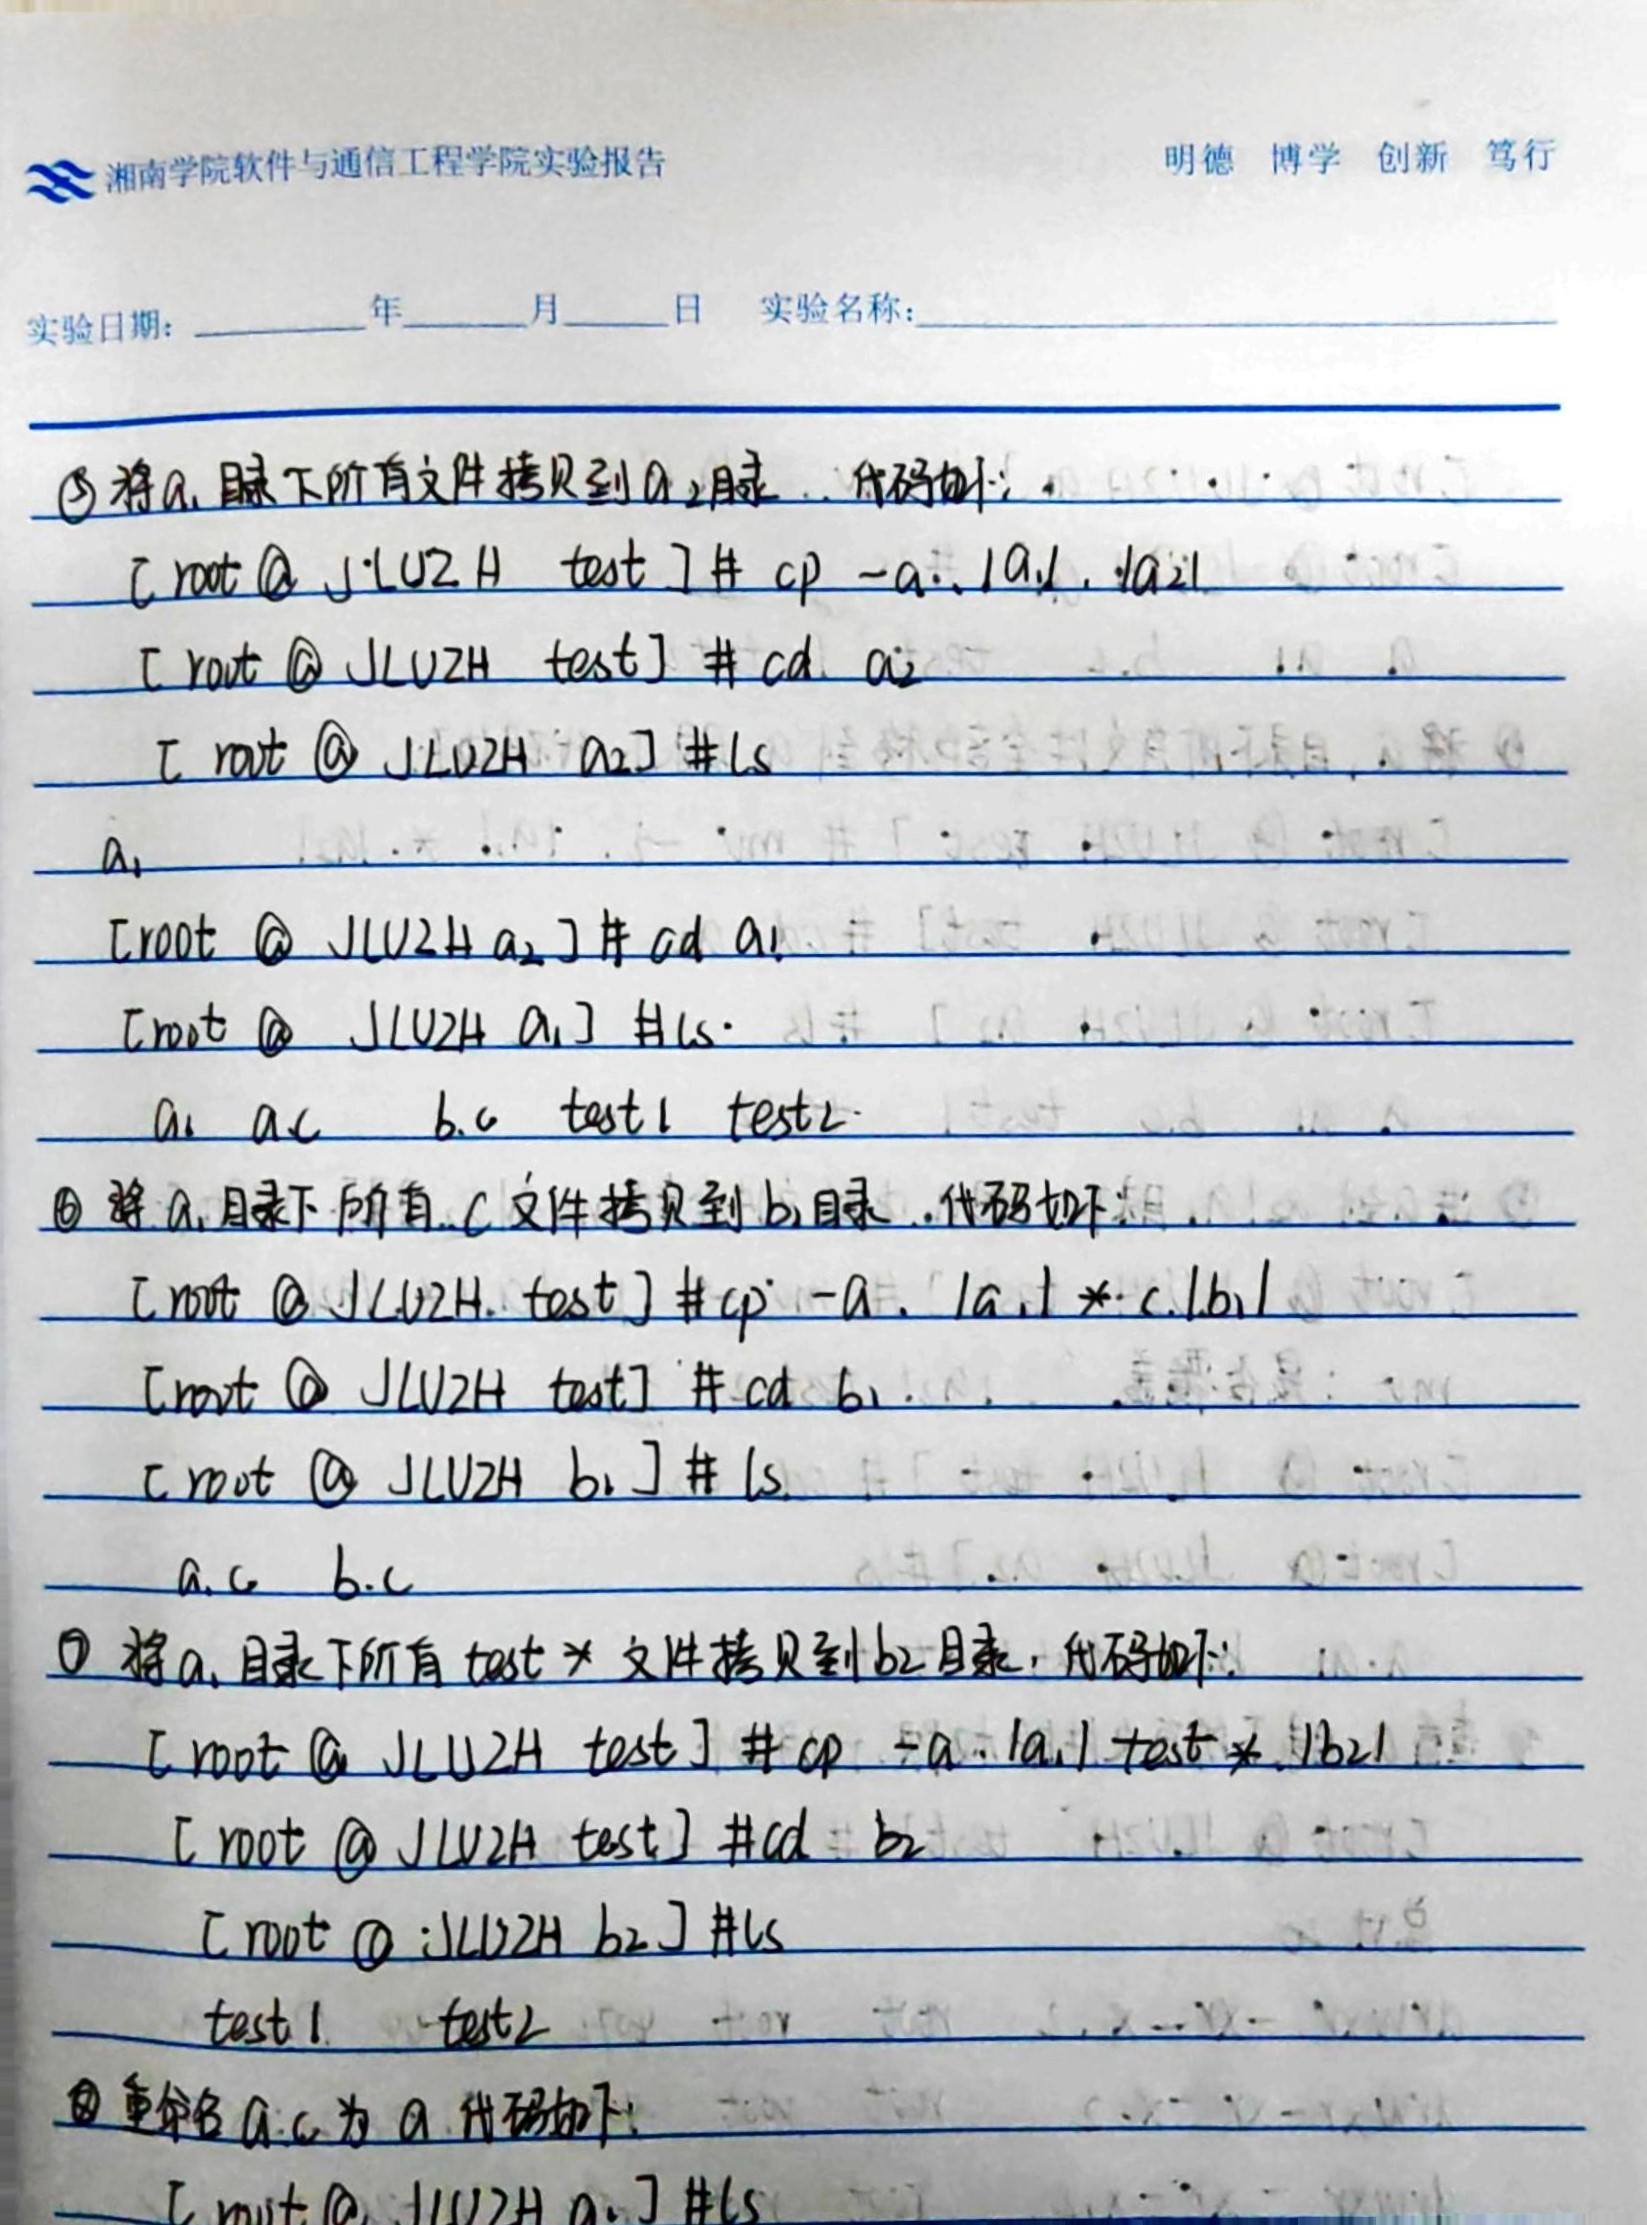 湘南学院软件与通信工程学院实验报告 明德 博学 创新 笃行
实验日期: 年 月 日 实验名称:
⑤ 将a1目录下所有文件拷贝到a2目录..代码如下:
[root@JLUZH test]# cp -a ./a1/ ./a2/
[root@JLUZH test]# cd a2
[root@JLUZH a2]# ls
a1
[root@JLUZH a2]# cd a1
[root@JLUZH a1]# ls
a1 a.c b.c test1 test2
⑥ 将a1目录下所有.c文件拷贝到b1目录.代码如下:
[root@JLUZH test]# cp -a ./a1/*.c ./b1/
[root@JLUZH test]# cd b1
[root@JLUZH b1]# ls
a.c b.c
⑦ 将a1目录下所有test*文件拷贝到b2目录,代码如下:
[root@JLUZH test]# cp -a ./a1/test* ./b2/
[root@JLUZH test]# cd b2
[root@JLUZH b2]# ls
test1 test2
⑧ 重命名a.c为a 代码如下:
[root@JLUZH a1]# ls